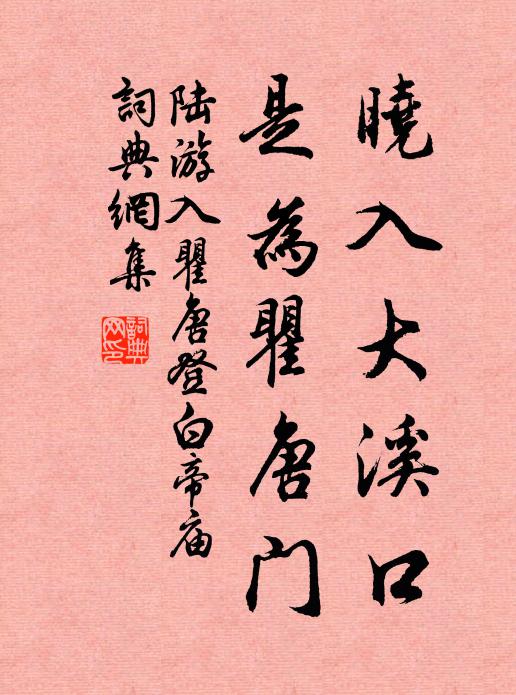 曉入大溪口
是為瞿唐門
陆游入瞿唐登白帝庙
詞典網集
詞典網印